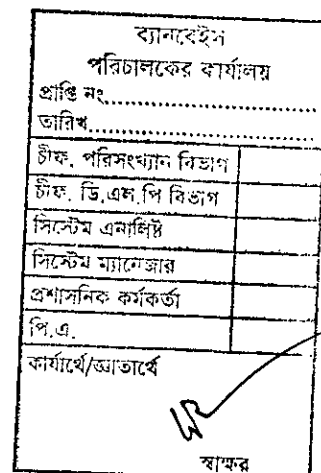 ব্যানবেইস
পরিচালকের কার্যালয়
প্রাপ্তি নং......................
তারিখ.........................
চীফ, পরিসংখ্যান বিভাগ
চীফ, ডি.এল.পি বিভাগ
সিস্টেম এনালিষ্ট
সিস্টেম ম্যানেজার
প্রশাসনিক কর্মকর্তা
পি.এ.
কার্যার্থে/জ্ঞাতার্থে
স্বাক্ষর